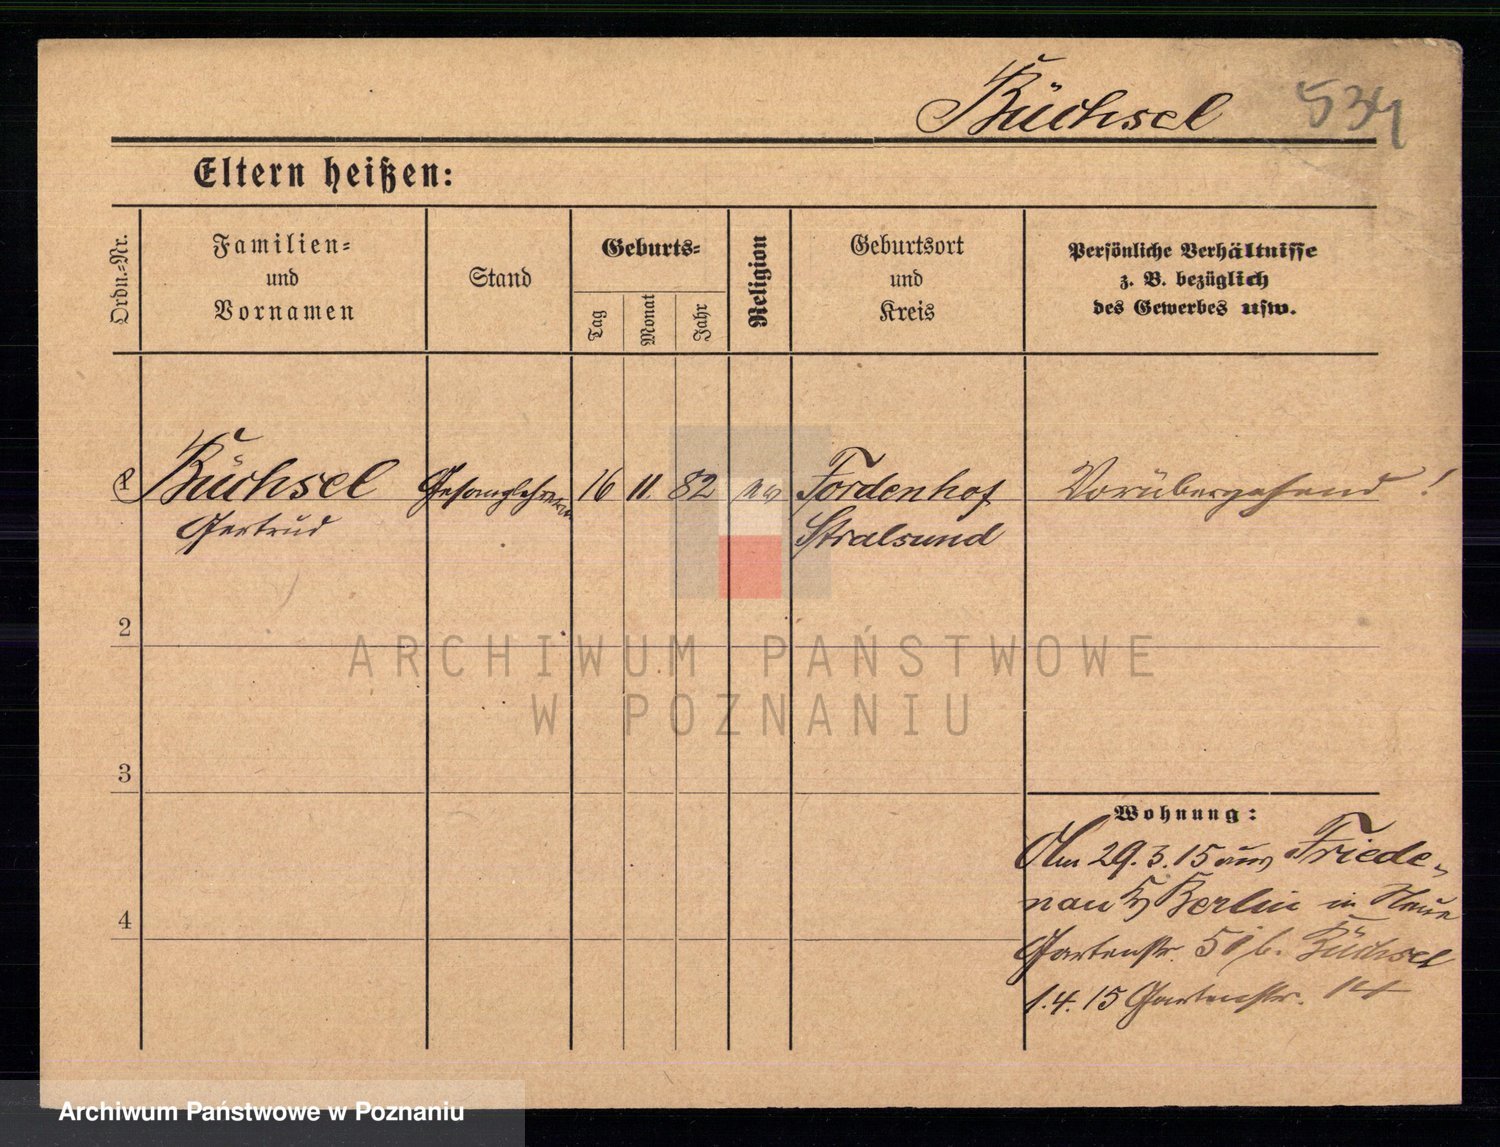 Büchsel 534
Eltern heißen:
Ordn.-Nr.
Familien-
und
Vornamen
Stand
Geburts-
Tag
Monat
Jahr
Religion
Geburtsort
und
Kreis
Persönliche Verhältnisse
z. B. bezüglich
des Gewerbes usw.
1 Büchsel Gesanglehrerin 16 11. 82 ev Fordenhof Vorübergehend!
Gertrud Stralsund
2
ARCHIWUM PAŃSTWOWE
W POZNANIU
3
Wohnung:
Am 29.3.15 aus Friede-
nau b/ Berlin in Neue
4
Gartenstr. 51 b. Büchsel
1.4.15 Gartenstr. 14
Archiwum Państwowe w Poznaniu